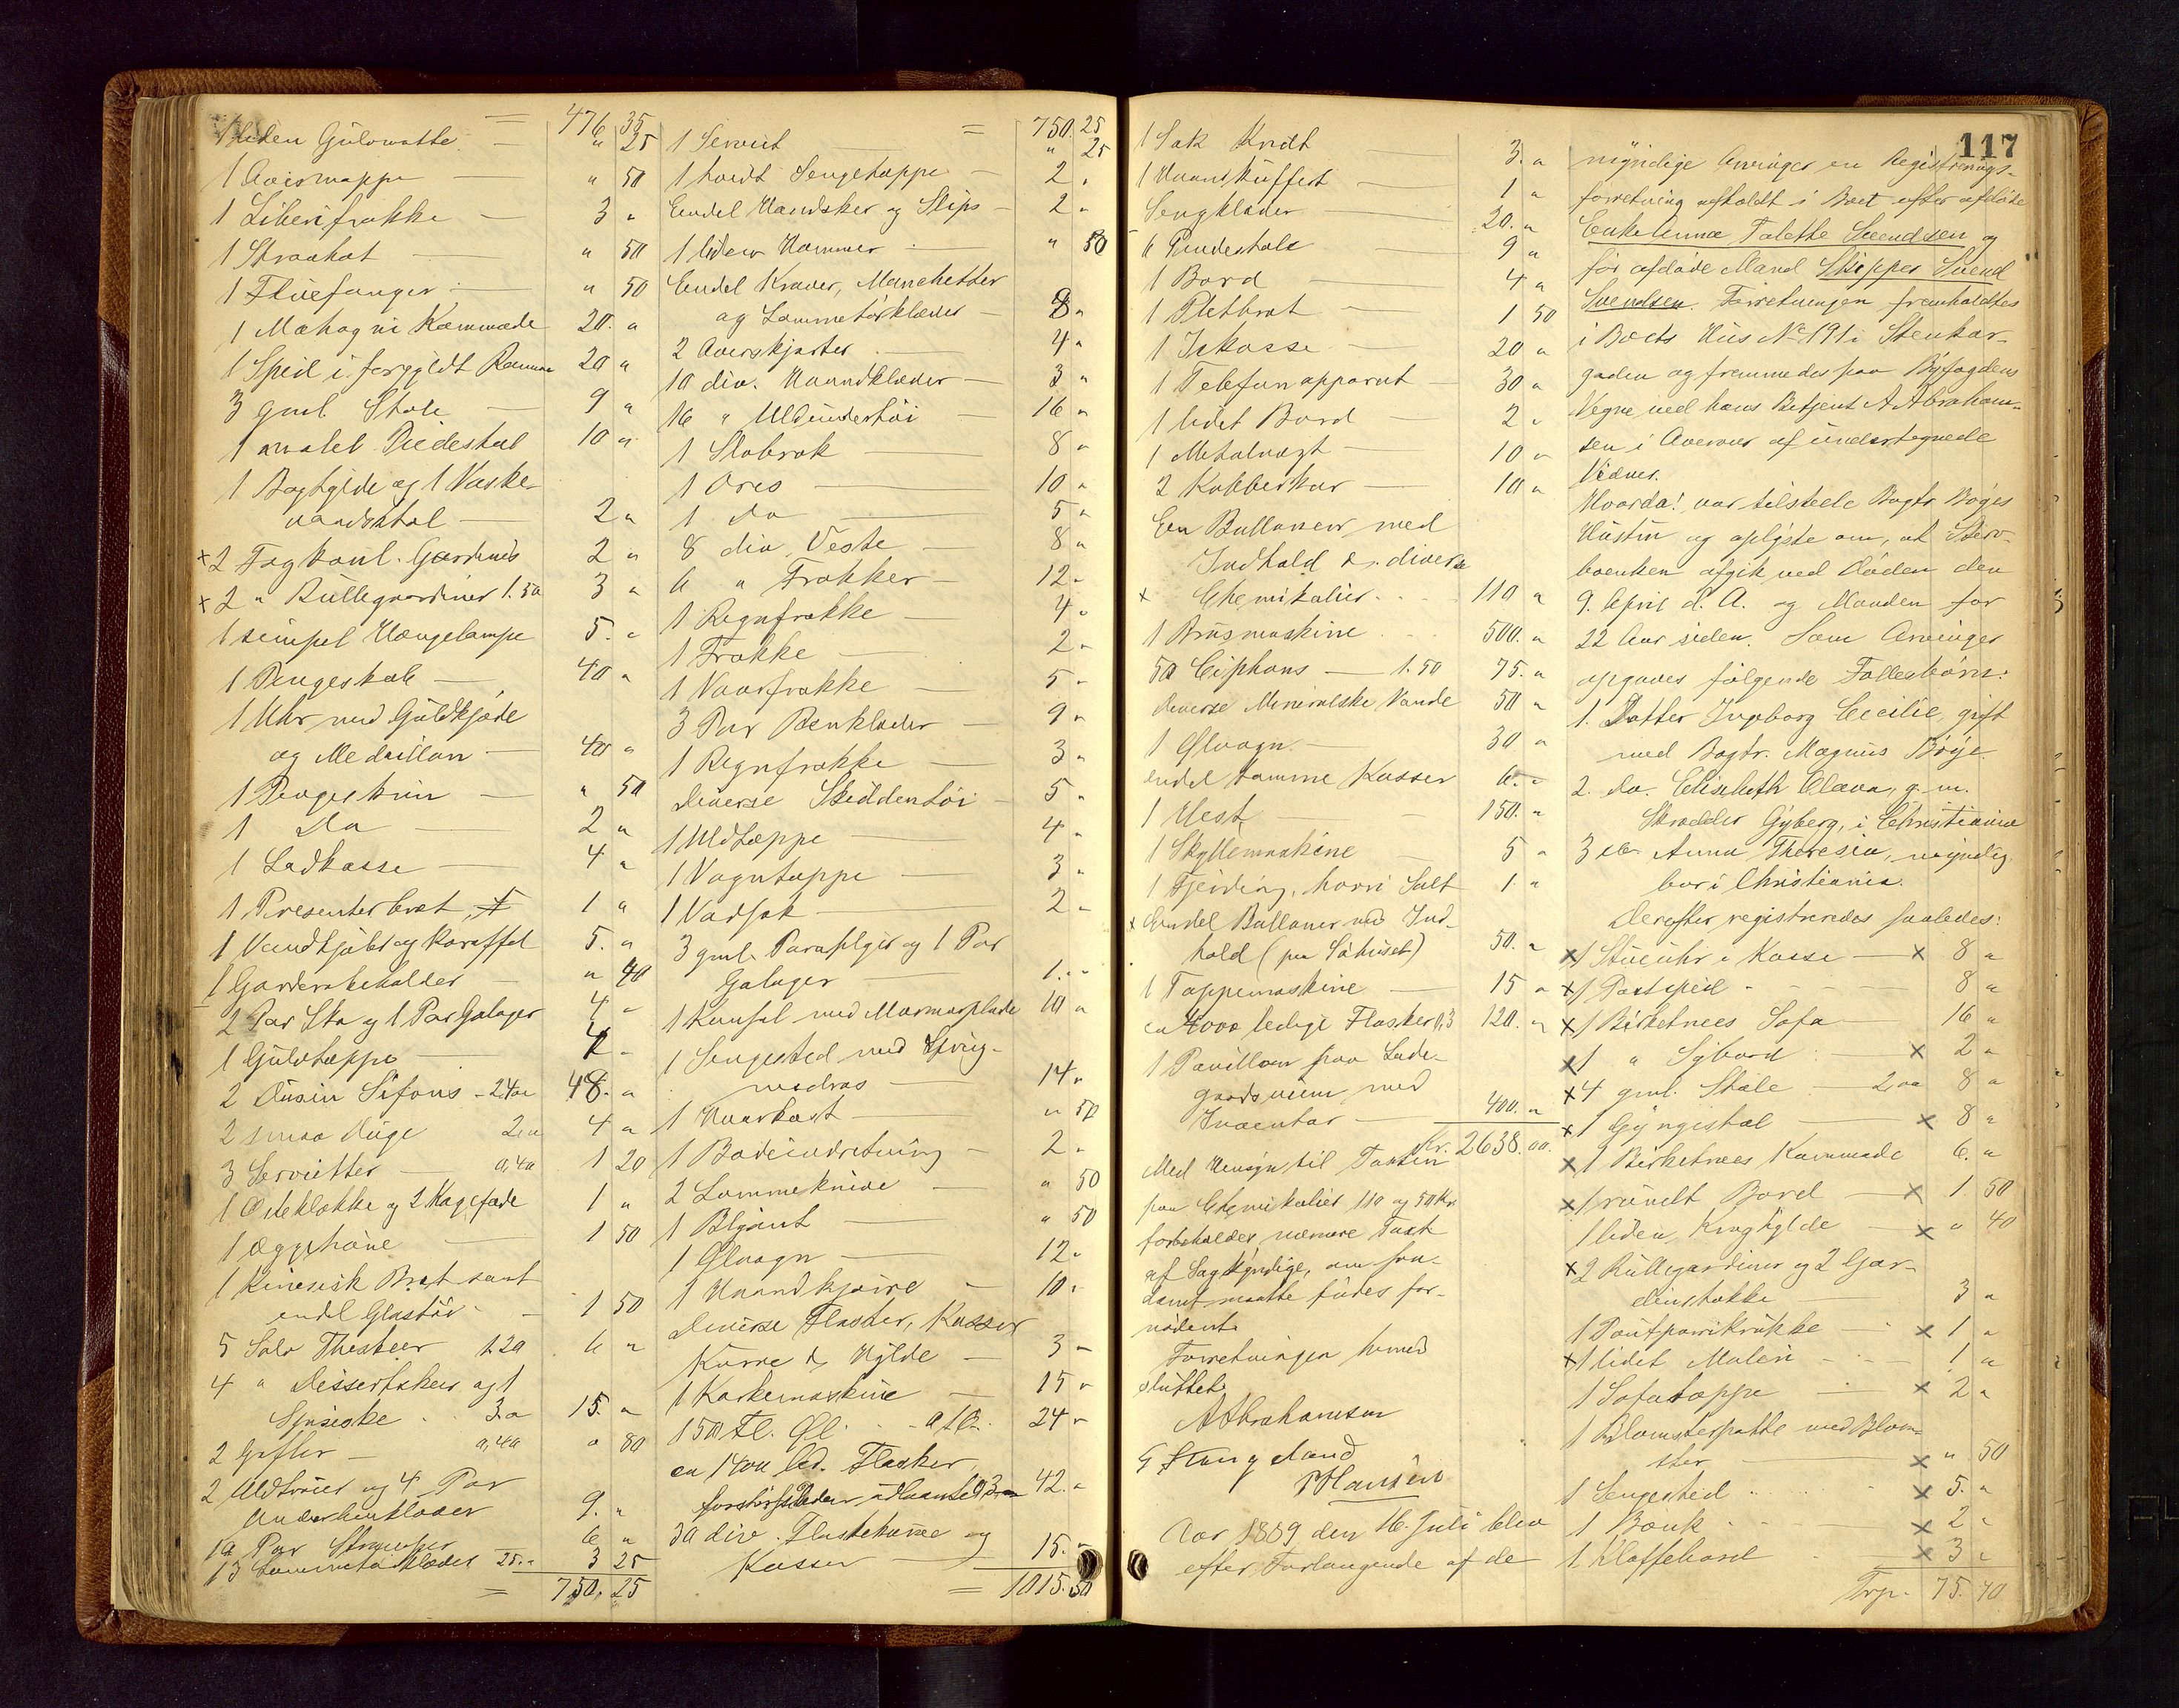 = 476 35
1 liden Gulvmatte — " 25
1 Avismappe — " 50
1 Liberifrakke — 3 "
1 Straahat — " 50
1 Fluefanger — " 50
1 Mahogni Kommode 20. "
1 Speil i forgyldt Ramme 20 "
3 gml. Stole — 9 "
1 malet Piedestal 10 "
1 Baghylde og 1 Vaske-
vandsstol — 2 "
x 2 Fag Gardiner 2 "
x 2 " Rullegardiner 1.50 3 "
1 simpel Hængelampe 5. "
1 Pengeskab — 40 "
1 Uhr med Guldkjæde
og Medaillon — 40 "
1 Pengeskrin — " 50
1 Do — 2 "
1 Ladkasse — 4 "
1 Presenterbret 1 "
1 Vandkjøler og Karaffel 5. "
1 Garderobeholder — " 40
2 Par Sko og 1 Par Galoger 4 "
1 Gulvtæppe — 2 "
2 Dusin Sifons - 24 oo 48. "
2 smaa Duge 2 oo 4 "
3 Servietter — 0,40 1 20
1 Osteklokke og 2 Kagefade 1 "
1 Æggehøne — 1 50
1 Kinesisk Bret samt
endel Glastøi — 1 50
5 Sølv Theskeer 1.20 6 "
4 " Dessertskeer og 1
Spiseske . . 3. oo 15. "
2 Gafler — 0,40 " 80
2 Uldtrøier og 4 Par
Underbenklæder 9. "
10 Par Strømper 6 "
13 Lommetørklæder 25. " 3 25
= 750. 25
= 750. 25
1 Serviet — " 25
1 hvidt Sengetæppe — 2 "
Endel Handsker og Slips — 2 "
1 liden Hammer — " 50
Endel Kraver, Manchetter
og Lommetørklæder — 8 "
2 Overskjorter — 4 "
10 div. Haandklæder — 3 "
16 " Uldundertøi — 16 "
1 Slobrok — 8 "
1 Dres — 10 "
1 do — 5 "
8 div Veste — 8 "
6 " Frakker — 12 "
1 Regnfrakke — 4 "
1 Frakke — 2 "
1 Vaarfrakke — 5 "
3 Par Benklæder — 9 "
1 Regnfrakke — 3 "
Diverse Skiddentøi — 5 "
1 Uldtæppe — 4 "
1 Vogntæppe — 3 "
1 Vadsæk — 2 "
3 gml. Paraplyer og 1 Par
Galoger — 1. "
1 Konsol med Marmorplade 10 "
1 Sengested med Spring-
madras — 14 "
1 Haarkost — " 50
1 Badeindretning — 2 "
2 Lommeknive — " 50
1 Blyant — " 50
1 Ølvogn — 12 "
1 Haandkjærre — 10 "
Diverse Flasker, Kasser
Kurve & Hylde — 3 "
1 Korkemaskine — 15 "
150 Fl. Øl. . . a 16. 24 "
ca 1400 led. Flasker,
42. "
30 div. Flaskekurve og
Kasser — 15. "
= 1015. 50
1 Sæk Kridt — 3. "
1 Haandkuffert — 1 "
Sengklæder — 20. "
6 Pindestole — 9 "
1 Bord — 4 "
1 Pletbret — 1 50
1 Iskasse — 20 "
1 Telefonapparat — 30 "
1 lidet Bord — 2 "
1 Metalvægt — 10 "
2 Kobberkar — 10 "
En Balloner med
Indhold & diverse
x Chemikalier . . . 110 "
1 Brusmaskine . . . 500. "
50 Ciphons — 1.50 75. "
Diverse Mineralske Vande 50 "
1 Ølvogn — 30 "
endel tomme Kasser 6. "
1 Hest — 150. "
1 Skyllemaskine — 5 "
1 Fjerding, hvori Salt 1. "
x Endel Balloner med Ind-
hold (paa Søhuset) 50. "
1 Tappemaskine — 15 "
ca 4000 ledige Flasker 0,3 120. "
1 Pavillon paa Lade-
gaards med
Inventar — 400. "
Kr. 2638.00.
Med Hensyn til Taxten
paa Chemikalier 110 og 50 Kr
forbeholdes nærmere Taxt
af Sagkyndige, om saa-
dant maatte findes for-
nødent.
Forretningen hermed
sluttet.
A Abrahamsen
G Stangeland
P Hansen
Aar 1889 den 16. Juli blev
efter Forlangende af de
117
myndige Arvinger en Registrerings-
forretning afholdt i Boet efter afdøde
Enke Anna Talette Svendsen og
før afdøde Mand Skipper Svend
Svendsen. Forretningen fremholdtes
i Boets Hus No 191 i Stenkar-
gaden og fremmedes paa Byfogdens
Vegne ved hans Betjent A Abraham-
sen i Overvær af undertegnede
Vidner.
Hvorda! var tilstede Bagtr Bøges
Hustru og oplyste om, at Sterv-
boenken afgik ved Døden den
9. April d. A. og Manden for
22 Aar siden. Som Arvinger
opgaves følgende Fællesbørn:
1. Datter Ingborg Cecilie, gift
med Bagtr. Magnus Bøije.
2. do. Elisabeth Olava, g. m.
Skrædder Gyberg, i Christiania
3 do Anna Theresia, myndig
bor i Christiania.
Derefter registreredes saaledes:
x 1 Stueuhr i Kasse — x 8 "
x 1 Postspeil - - - - 8 "
x 1 Birketrees Sofa 16 "
x 1 " Sybord x 2 "
x 4 gml. Stole 2 oo 8 "
x 1 Gyngistol — x 8 "
x 1 Birketrees Kommode 6. "
x 1 rundt Bord — x 1. 50
1 liden Kroghylde — x " 40
x 2 Rullegardiner og 2 Gar-
dinstokke — 3 "
1 Poutpurrikrukke — x 1 "
x 1 lidet Maleri - - 1 "
1 Sofatæppe — x 2 "
1 Blomsterpotte med Blom-
ster — x " 50
1 Sengested . . . x 5. "
1 Bænk . . . x 2 "
1 Klaffebord . x 3 "
Trp. 75. 40